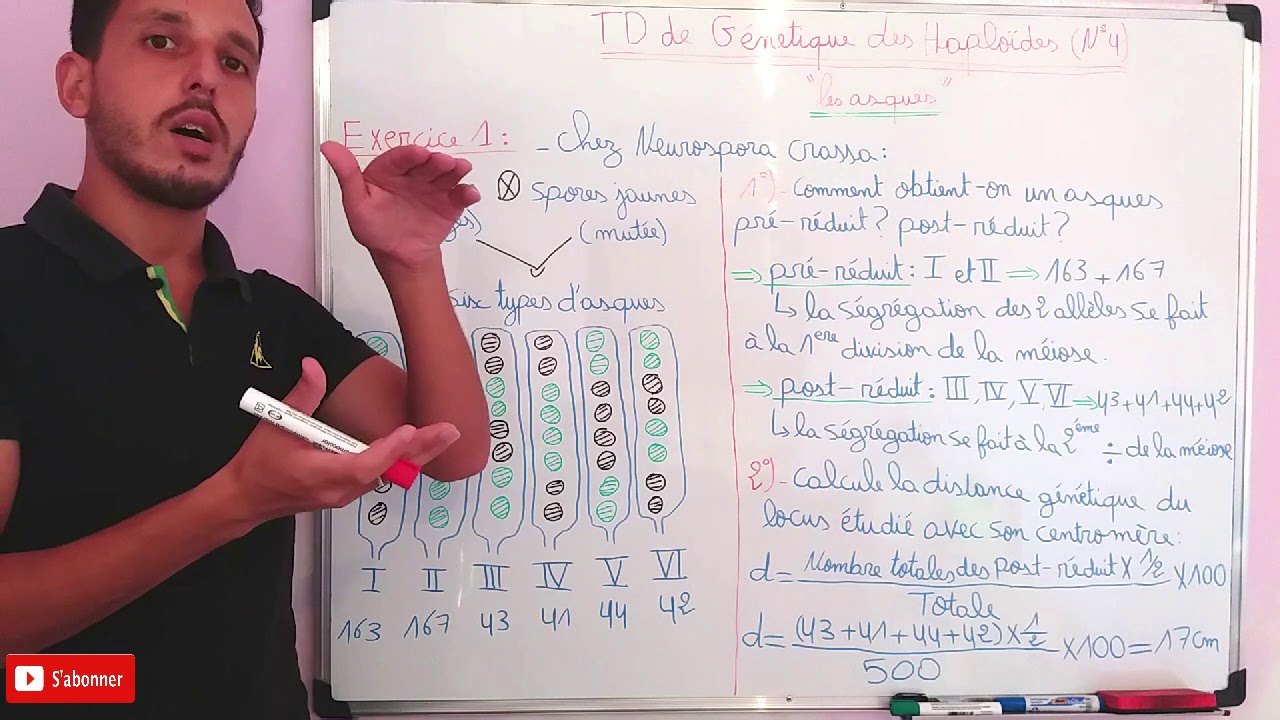 TD de Génetique des Haploïdes (N°4)
"les asques"
Exercice 1: - Chez Neurospora Crassa:
spores jaunes
(mutée)
Six types d'asques
I II III IV V VI
163 167 43 41 44 42
1°)- Comment obtient-on un asques
pré-réduit? post-réduit?
⇒ pré-réduit: I et II ⇒ 163 + 167
↳ la ségrégation des 2 allèles se fait
à la 1ere division de la méiose.
⇒ post-réduit: III, IV, V, VI ⇒ 43+41+44+42
↳ la ségrégation se fait à la 2ème ÷ de la méiose
2°)- Calcule la distance génétique du
locus étudié avec son centromère:
d = Nombre totales des post-réduit x 1/2 x 100
Totale
d = (43+41+44+42) x 1/2 x 100 = 17 cm
500
S'abonner